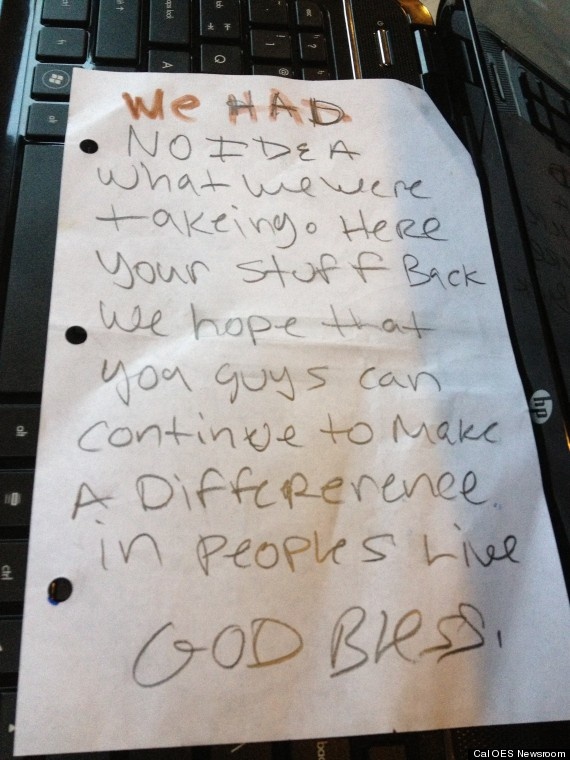 We HAD
NO IDEA
What we were
takeing. Here
your stuff Back
We hope that
you guys can
continue to Make
A Differerence.
in peoples Live
GOD Bless.
hp
alt
ctrl
Cal OES Newsroom